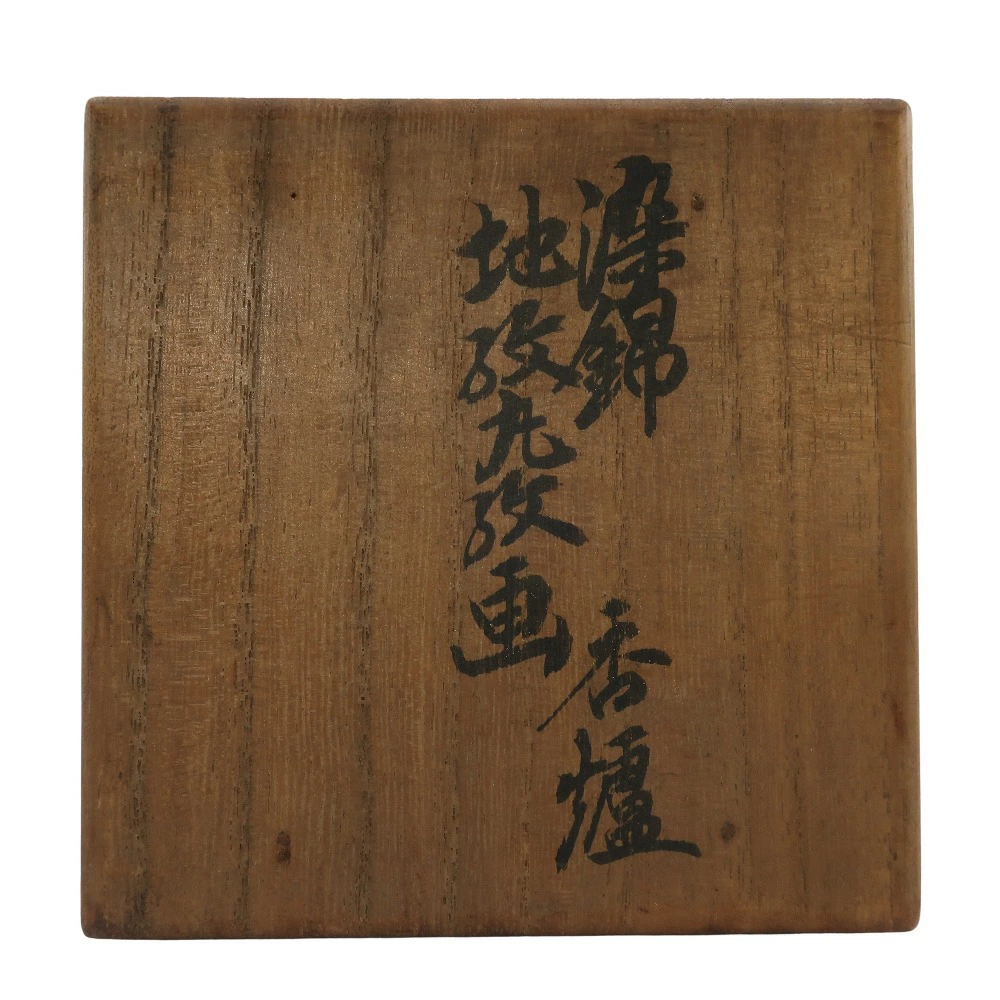 染錦
地紋丸紋画
香爐